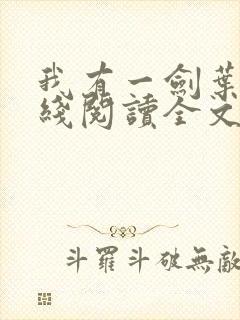 我有一劍葉
綫閱讀全文
斗羅斗破無敵